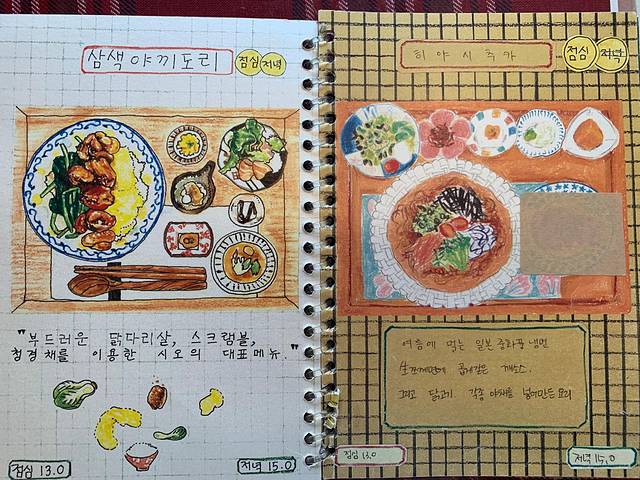 삼색 야끼도리
점심 저녁
"부드러운 닭다리살, 스크램블,
청경채를 이용한 시오의 대표메뉴."
점심 13.0
저녁 15.0
히야시츄카
점심 저녁
여름에 먹는 일본 중화풍 냉면
깨소스.
그리고 닭고기 각종 야채를 넣어만든 요리
점심 13.0
저녁 15.0